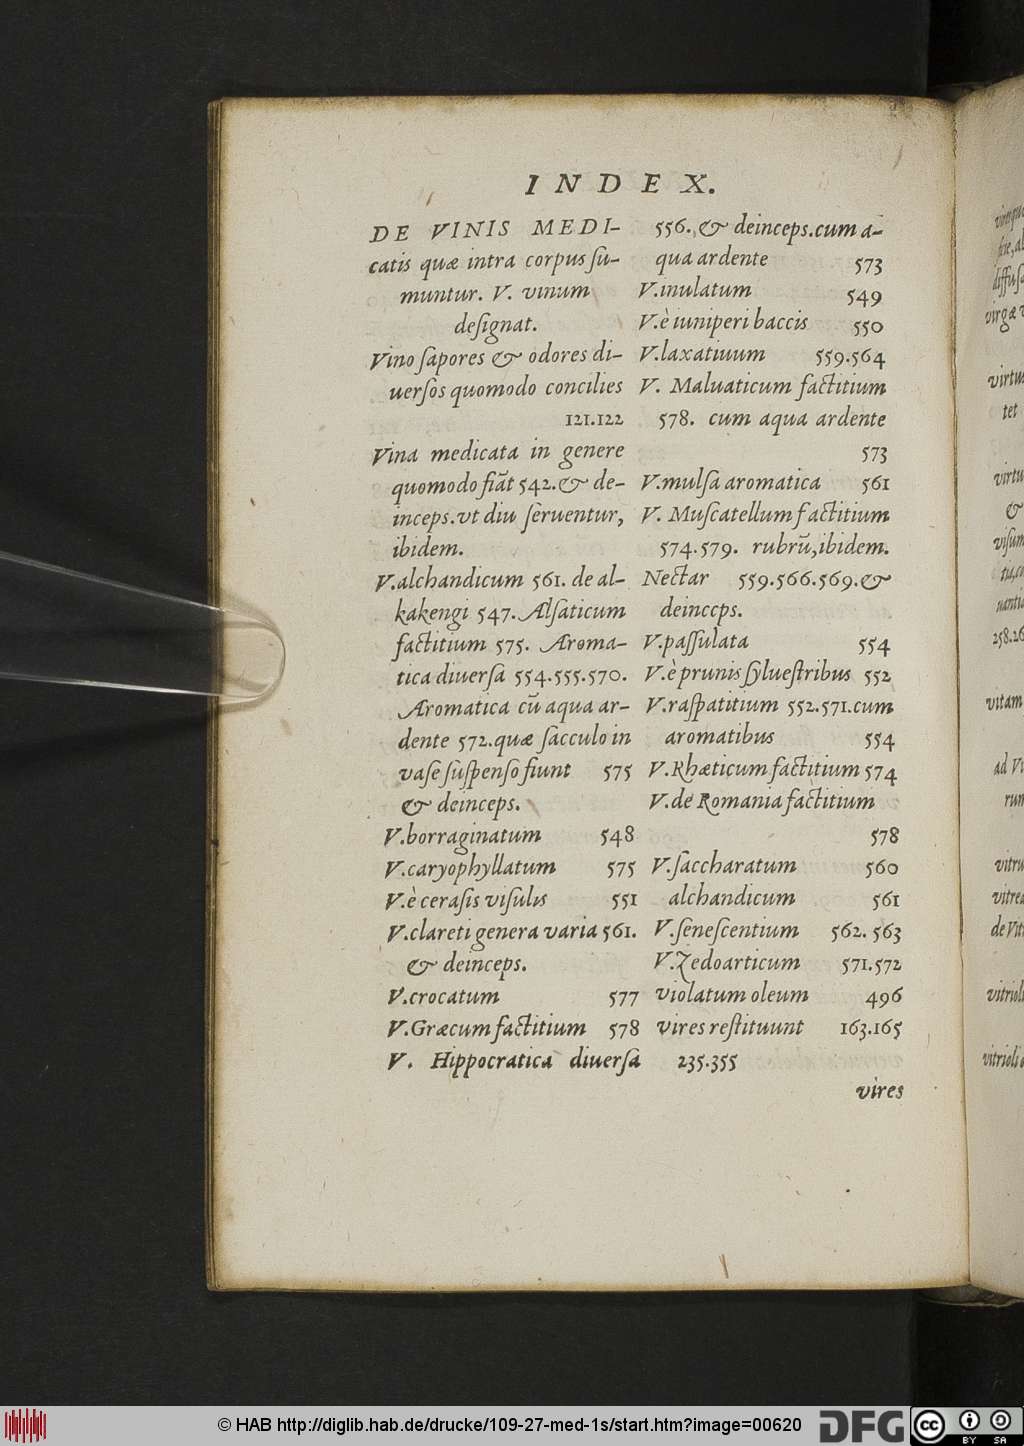 INDEX.
DE VINIS MEDI-
catis quæ intra corpus ſu-
muntur. V. vinum
deſignat.
Vino ſapores & odores di-
uerſos quomodo concilies
121.122
Vina medicata in genere
quomodo fiāt 542.& de-
inceps.vt diu ſeruentur,
ibidem.
V.alchandicum 561. de al-
kakengi 547. Ælſaticum
factitium 575. Aroma-
tica diuerſa 554.555.570.
Aromatica cū aqua ar-
dente 572.quæ ſacculo in
vaſe ſuſpenſo fiunt 575
& deinceps.
V.borraginatum 548
V.caryophyllatum 575
V.è ceraſis viſulis 551
V.clareti genera varia 561.
& deinceps.
V.crocatum 577
V.Græcum factitium 578
V. Hippocratica diuerſa
556. & deinceps.cum a-
qua ardente 573
V.inulatum 549
V.è iuniperi baccis 550
V.laxatiuum 559.564
V. Maluaticum factitium
578. cum aqua ardente
573
V.mulſa aromatica 561
V. Muſcatellum factitium
574.579. rubrū,ibidem.
Nectar 559.566.569.&
deinceps.
V.paſſulata 554
V.è prunis ſylueſtribus 552
V.raſpatitium 552.571.cum
aromatibus 554
V.Rhæticum factitium 574
V.de Romania factitium
578
V.ſaccharatum 560
alchandicum 561
V.ſeneſcentium 562. 563
V.Zedoarticum 571.572
violatum oleum 496
vires reſtituunt 163.165
235.355
vires
virtu
&
vitam
ad Vi
vitrioli
© HAB http://diglib.hab.de/drucke/109-27-med-1s/start.htm?image=00620
DFG
cc
BY SA